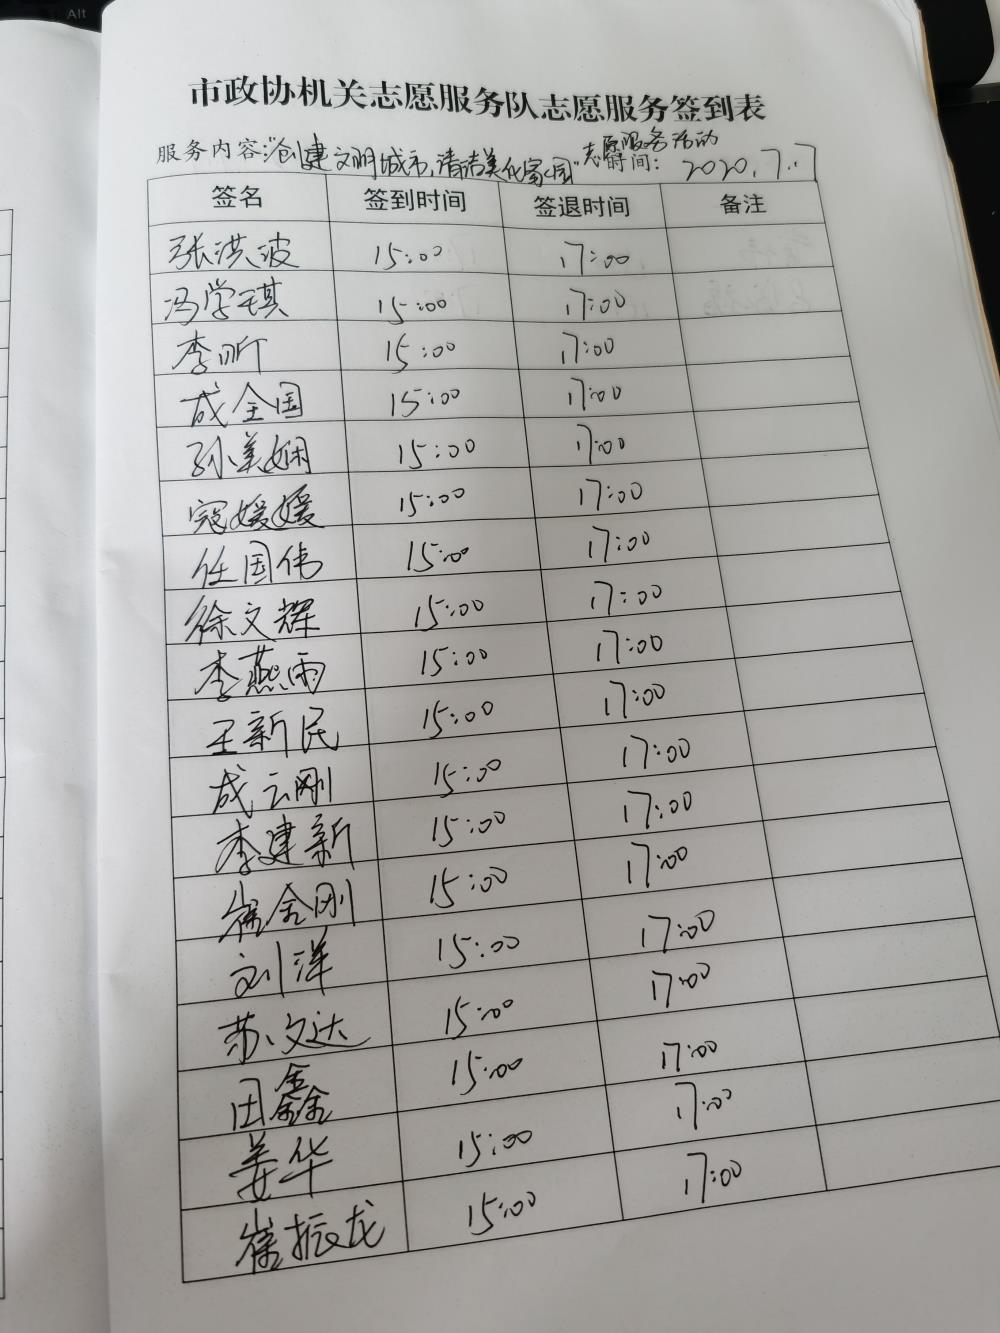 Alt
市政协机关志愿服务队志愿服务签到表
服务内容:"创建文明城市,清洁美化家园"志愿服务活动 时间: 2020.7.7
签名 签到时间 签退时间 备注
张洪波 15:00 17:00
冯学琪 15:00 17:00
李昕 15:00 17:00
成全国 15:00 17:00
孙美娴 15:00 17:00
寇媛媛 15:00 17:00
任国伟 15:00 17:00
徐文辉 15:00 17:00
李燕雨 15:00 17:00
王新民 15:00 17:00
成云刚 15:00 17:00
李建新 15:00 17:00
崔金刚 15:00 17:00
刘洋 15:00 17:00
苏文达 15:00 17:00
田鑫 15:00 17:00
姜华 15:00 17:00
崔振龙 15:00 17:00